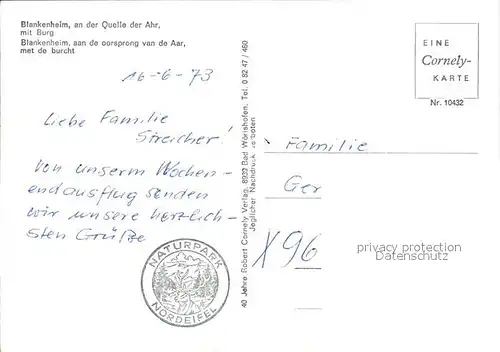 Blankenheim, an der Quelle der Ahr,
mit Burg
Blankenheim, aan de oorsprong van de Aar,
met de burcht
16-6-73
Liebe Familie
Streicher!
Von unserm Wochen-
endausflug senden
wir unsere herzlich-
sten Grüße
NATURPARK
NORDEIFEL
40 Jahre Robert Cornely Verlag, 8939 Bad Wörishofen. Tel. 0 82 47 / 460
Jeglicher Nachdruck verboten
EINE
Cornely-
KARTE
Nr. 10432
Familie
Ger
X96
privacy protection
Datenschutz